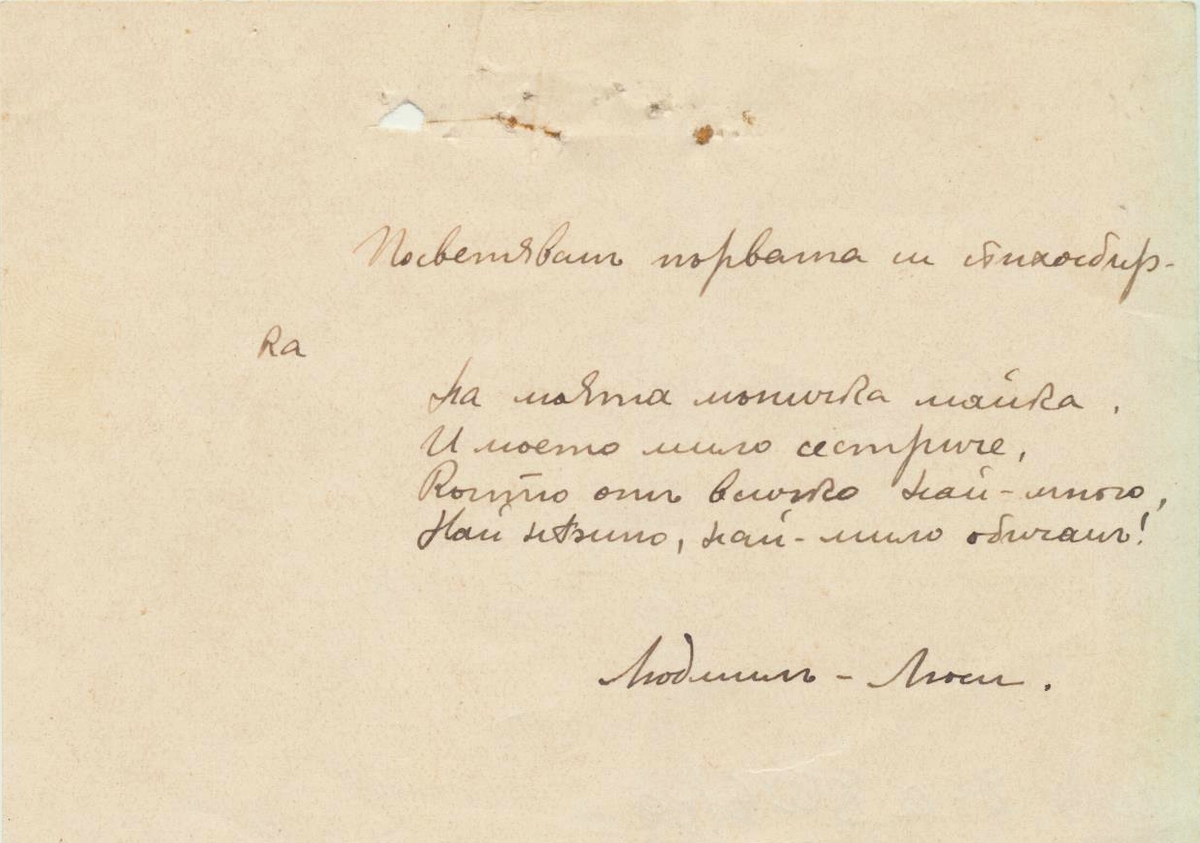 Посветявамъ първата си стихосбир-
ка
на моята мъничка майка.
И моето мило сестриче,
Които отъ всичко най-много,
Най нѣжно, най-мило обичамъ!
Людмилъ - Люси.